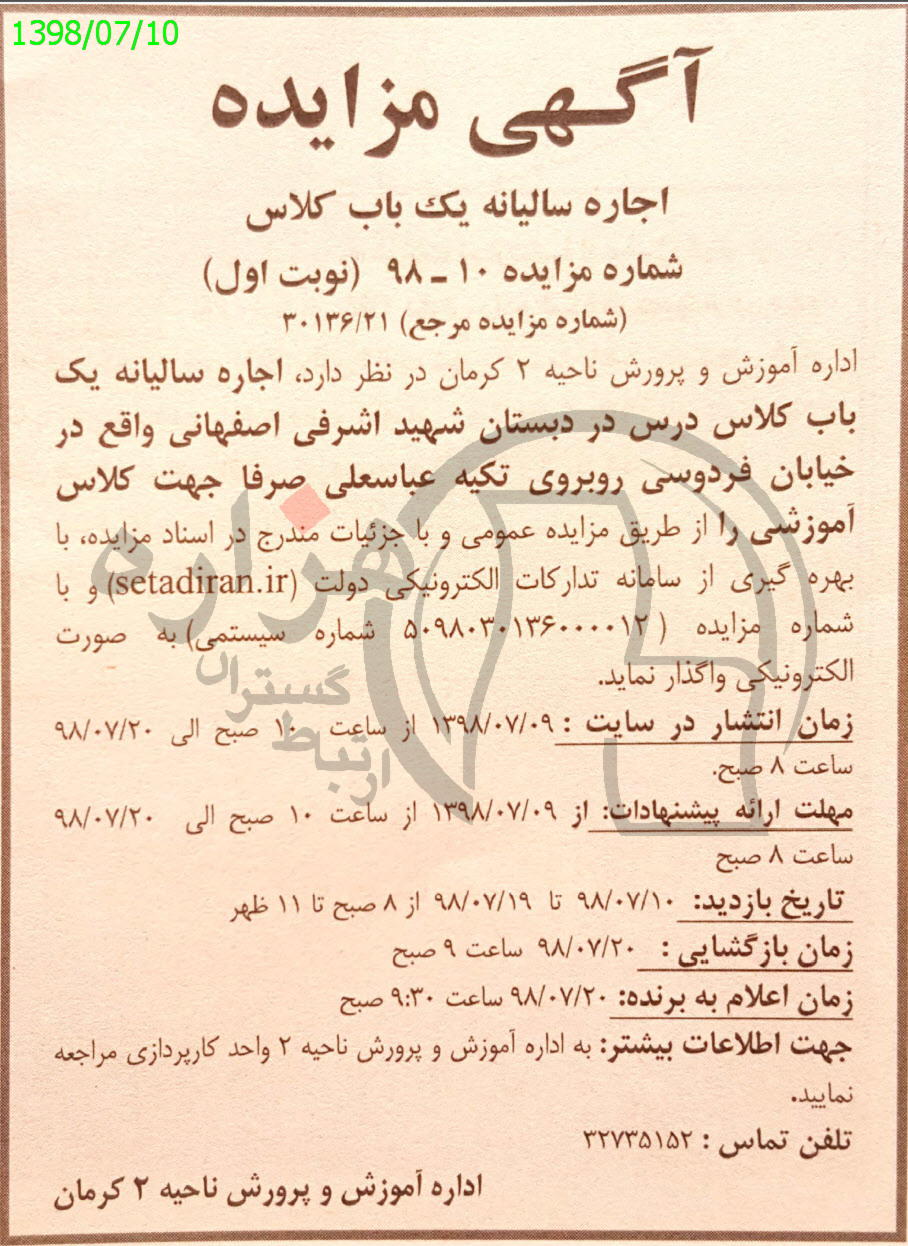 1398/07/10
آگهی مزایده
اجاره سالیانه یک باب کلاس
شماره مزایده ۱۰ ـ ۹۸ (نوبت اول)
(شماره مزایده مرجع) ۳۰۱۳۶/۲۱
اداره آموزش و پرورش ناحیه ۲ کرمان در نظر دارد، اجاره سالیانه یک
باب کلاس درس در دبستان شهید اشرفی اصفهانی واقع در
خیابان فردوسی روبروی تکیه عباسعلی صرفا جهت کلاس
آموزشی را از طریق مزایده عمومی و با جزئیات مندرج در اسناد مزایده، با
بهره گیری از سامانه تدارکات الکترونیکی دولت (setadiran.ir) و با
شماره مزایده (۵۰۹۸۰۳۰۱۳۶۰۰۰۰۱۲ شماره سیستمی) به صورت
الکترونیکی واگذار نماید.
زمان انتشار در سایت : ۱۳۹۸/۰۷/۰۹ از ساعت ۱۰ صبح الی ۹۸/۰۷/۲۰
ساعت ۸ صبح.
مهلت ارائه پیشنهادات: از ۱۳۹۸/۰۷/۰۹ از ساعت ۱۰ صبح الی ۹۸/۰۷/۲۰
ساعت ۸ صبح
تاریخ بازدید: ۹۸/۰۷/۱۰ تا ۹۸/۰۷/۱۹ از ۸ صبح تا ۱۱ ظهر
زمان بازگشایی : ۹۸/۰۷/۲۰ ساعت ۹ صبح
زمان اعلام به برنده: ۹۸/۰۷/۲۰ ساعت ۹:۳۰ صبح
جهت اطلاعات بیشتر: به اداره آموزش و پرورش ناحیه ۲ واحد کارپردازی مراجعه
نمایید.
تلفن تماس : ۳۲۷۳۵۱۵۲
اداره آموزش و پرورش ناحیه ۲ کرمان
هزاره
گستران
ارتباط